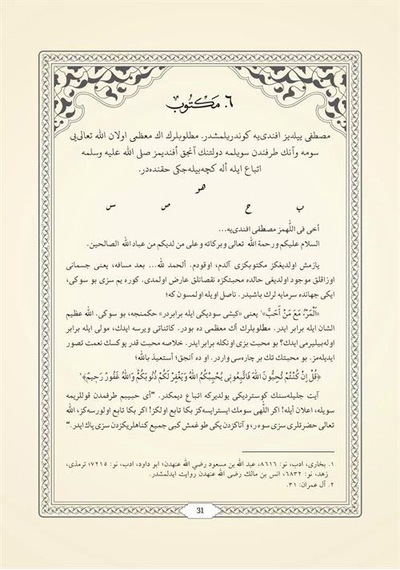 ٦. مكتوب
مصطفى ييلديز افندى‌يه كوندريلمشدر. مطلوبلرك اڭ معظمى اولان الله تعالى‌يى
سومه وآنك طرفندن سويلمه دولتنك آنجق أفنديمز صلى الله عليه وسلمه
اتباع ايله أله كچه‌بيله‌جكى حقنده‌در.
هو
ب ح ص س
أخى فى اللّهمز مصطفى افندى‌يه...
السلام عليكم ورحمة الله تعالى وبركاته وعلى من لديكم من عباد الله الصالحين.
يازمش اولديغكز مكتوبكزى آلدم، اوقودم. ألحمد لله... بعد مسافه، يعنى جسمانى
اوزاقلق موجود اولديغى حالده محبتكزه نقصانلق عارض اولمدى. كوره يم سزى بو سوكى،
ايكى جهانده سرمايه لرك باشيدر. ناصل اويله اولمسون كه؛
﴿اَلْمَرْءُ مَعَ مَنْ أَحَبَّ﴾¹ يعنى «كيشى سوديكى ايله برابردر» حكمنجه، بو سوكى، الله عظيم
الشان ايله برابر ايدر. مطلوبلرك أڭ معظمى ده بودر. كائناتى ويرسه ايدك، مولى ايله برابر
اوله‌بيليرمى ايدك؟ بو محبت بزى اونكله برابر ايدر. خلاصه محبت قدر يوكسك نعمت تصور
ايديله‌مز. بو محبتك تك بر چاره‌سى واردر. او ده آنجق؛ أستعيذ بالله؛
﴿قُلْ إِنْ كُنْتُمْ تُحِبُّونَ اللهَ فَاتَّبِعُونِى يُحْبِبْكُمُ اللهُ وَيَغْفِرْ لَكُمْ ذُنُوبَكُمْ وَاللهُ غَفُورٌ رَحِيمٌ﴾²
آيت جليله‌سنك كوسترديكى يولديركه اتباعدر ديمكدر. "أى حبيبم طرفمدن قوللريمه
سويله، اعلان أيله! اكر اللّهى سومك ايسترايسه‌كز بكا تابع اولكز! اكر بكا تابع اولورسه‌كز، الله
تعالى حضرتلرى سزى سوه‌ر، و آناكزدن يكى طوغمش كبى جميع كناهلريكزدن سزى پاك ايدر."
١. بخارى، ادب، نو: ٨٦١٦، عبد الله بن مسعود رضي الله عنهدن؛ ابو داود، ادب، نو: ٧٢١٥؛ ترمذى،
زهد، نو: ٦٨٣٢، انس بن مالك رضي الله عنهدن روايت ايدلمشدر.
٢. آل عمران: ٣١.
31